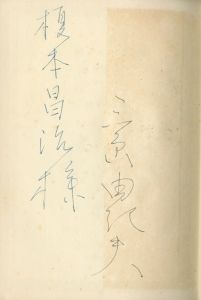 榎本昌治様
三島由紀夫